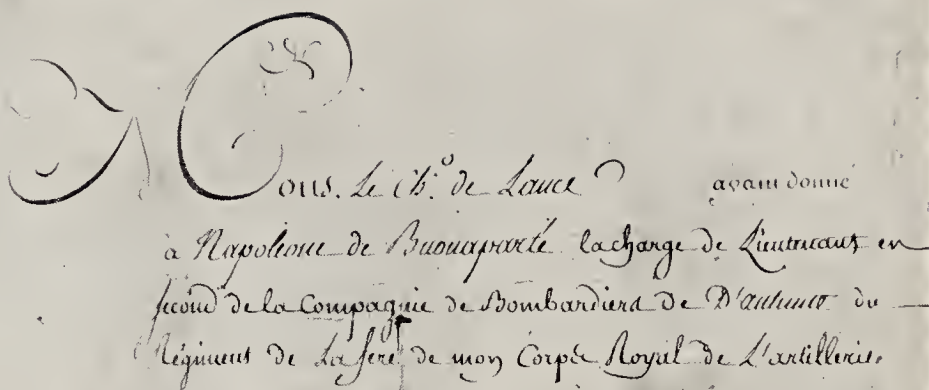 Mons. Le Ch.er de Lance ayant donné
à Napoleone de Buonaparte la charge de Lieutenant en
second de la Compagnie de Bombardiers de D'autume du
Régiment de La fere, de mon Corps Royal de L'artillerie.